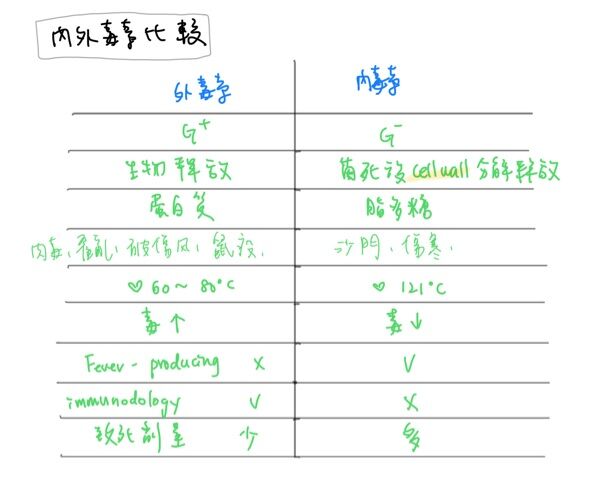 內外毒素比較
外毒素 內毒素
G+ G-
生物釋放 菌死後 cell wall 分解釋放
蛋白質 脂多糖
肉毒、霍亂、破傷風、鼠疫、 沙門、傷寒、
♡ 60 ~ 80°C ♡ 121°C
毒 ↑ 毒 ↓
Fever - producing X V
immunodology V X
致死劑量 少 多